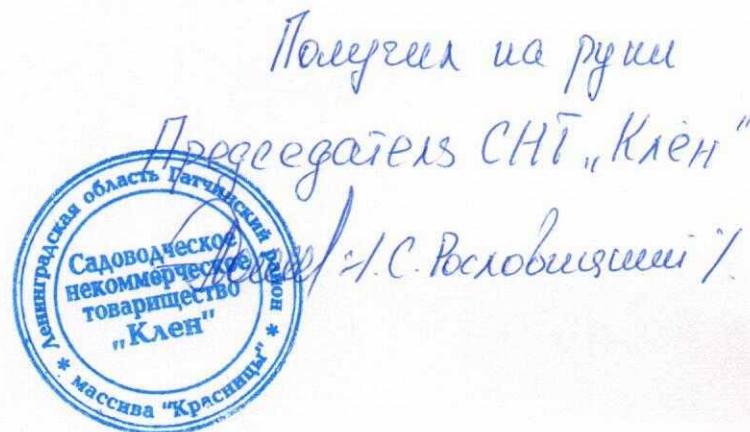 Получил на руки
Председатель СНТ „Клён"
/.С. Рословицкий /.
Ленинградская область Гатчинский район
* массива "Красницы" *
Садоводческое
некоммерческое
товарищество
„Клен"